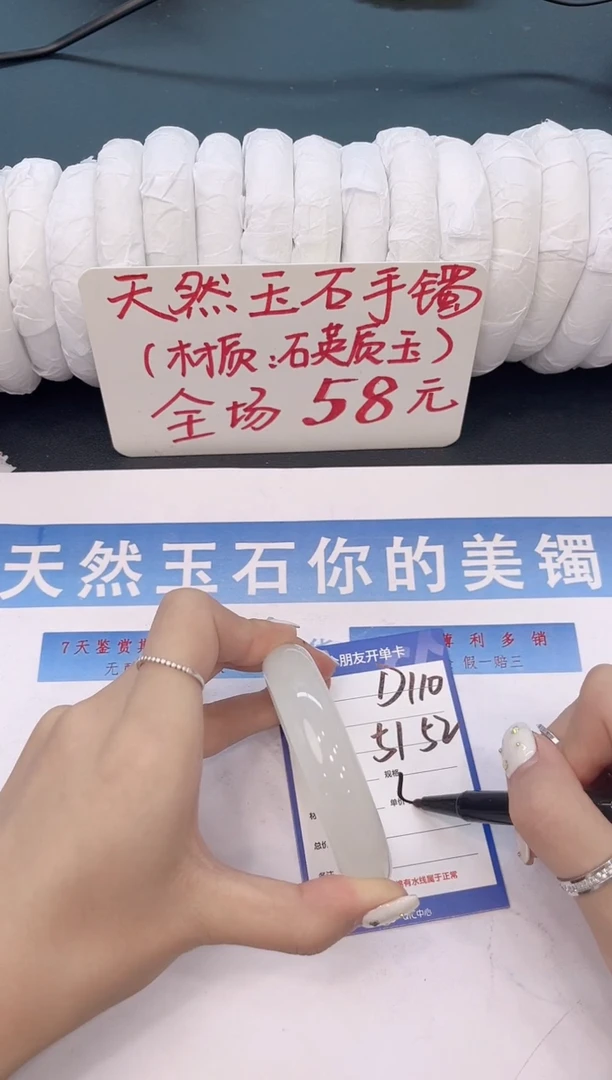 天然玉石手镯
(材质:石英质玉)
全场 58元
天然玉石你的美镯
7天鉴赏
薄利多销
假一赔三
朋友开单卡
D110
51 52
规格
单价
总价
有水线属于正常
中心